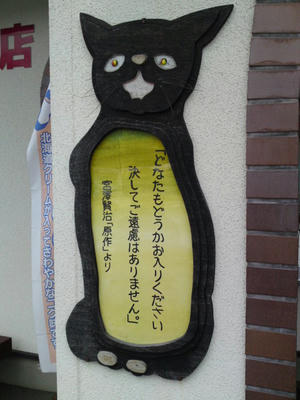 「どなたもどうかお入りください
決してご遠慮はありません。」
宮澤賢治「原作」より
店
北海道クリームが入ってさわやかなコクです。